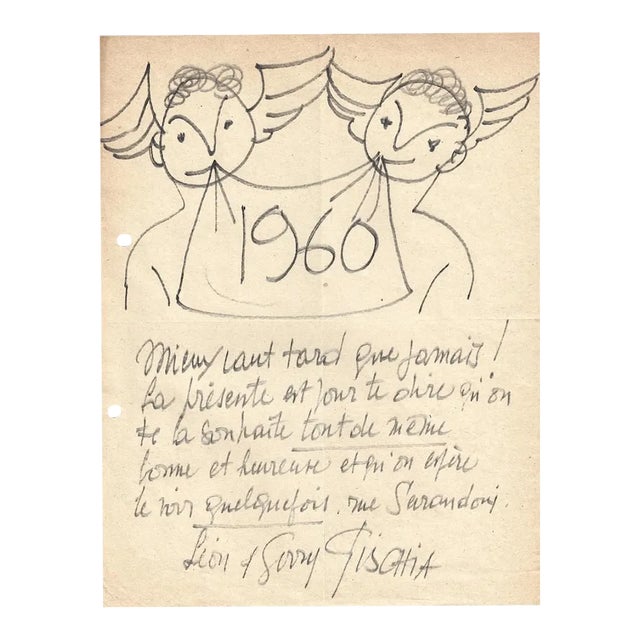 1960
Mieux vaut tard que jamais !
La présente est pour te dire qu'on
te la souhaite tout de même
bonne et heureuse et qu'on espère
te voir quelquefois, rue Servandoni.
Léon & Gerry GISCHIA